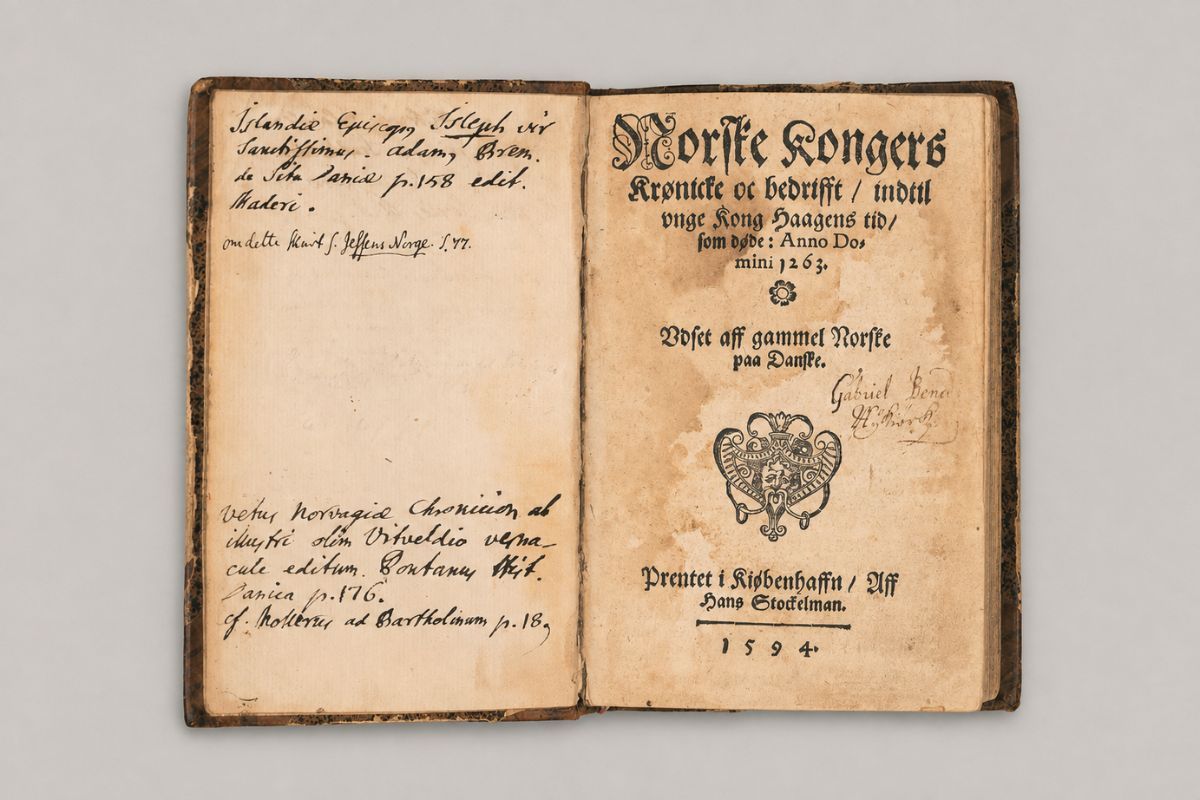 Islandiæ Episcop, Isleph vir
Sanctissimus. Adam, Brem.
de Situ Daniæ p. 158 edit.
Maderi.
om dette Skrift s. Jessens Norge. S. 77.
Vetus Norvagiæ Chronicon ab
illustri olim Vitveldio verna-
cule editum. Pontanus Hist.
Danica p. 176.
cf. Mollerus ad Bartholinum p. 18,
Norske Kongers
Krønicke oc bedrifft / indtil
vnge Kong Haagens tid/
som døde: Anno Do-
mini 1263.
Vdset aff gammel Norske
paa Danske.
Gabriel
Prentet i Kiøbenhaffn / Aff
Hans Stockelman.
1594.